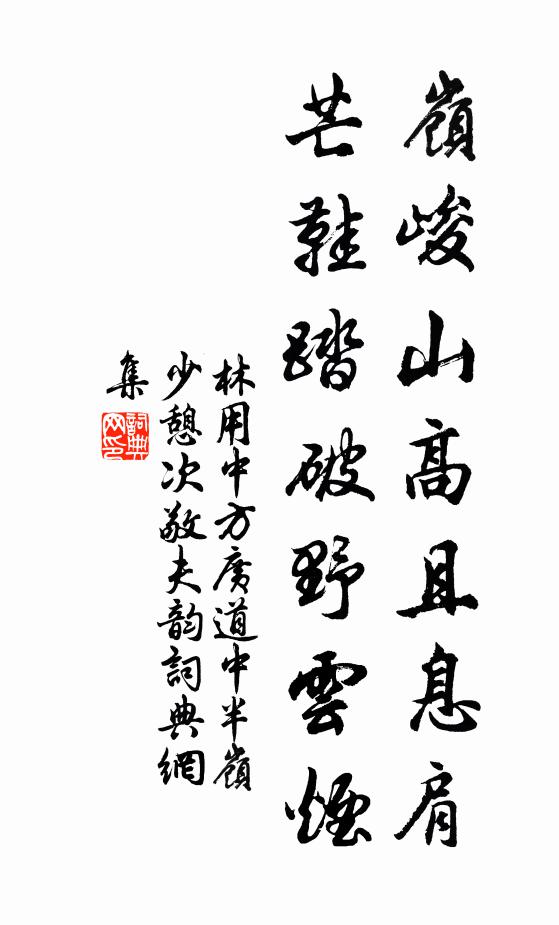 嶺峻山高且息肩
芒鞋踏破野雲煙
林用中方廣道中半嶺
少憩次敬夫韵詞典網
集
詞典
网印